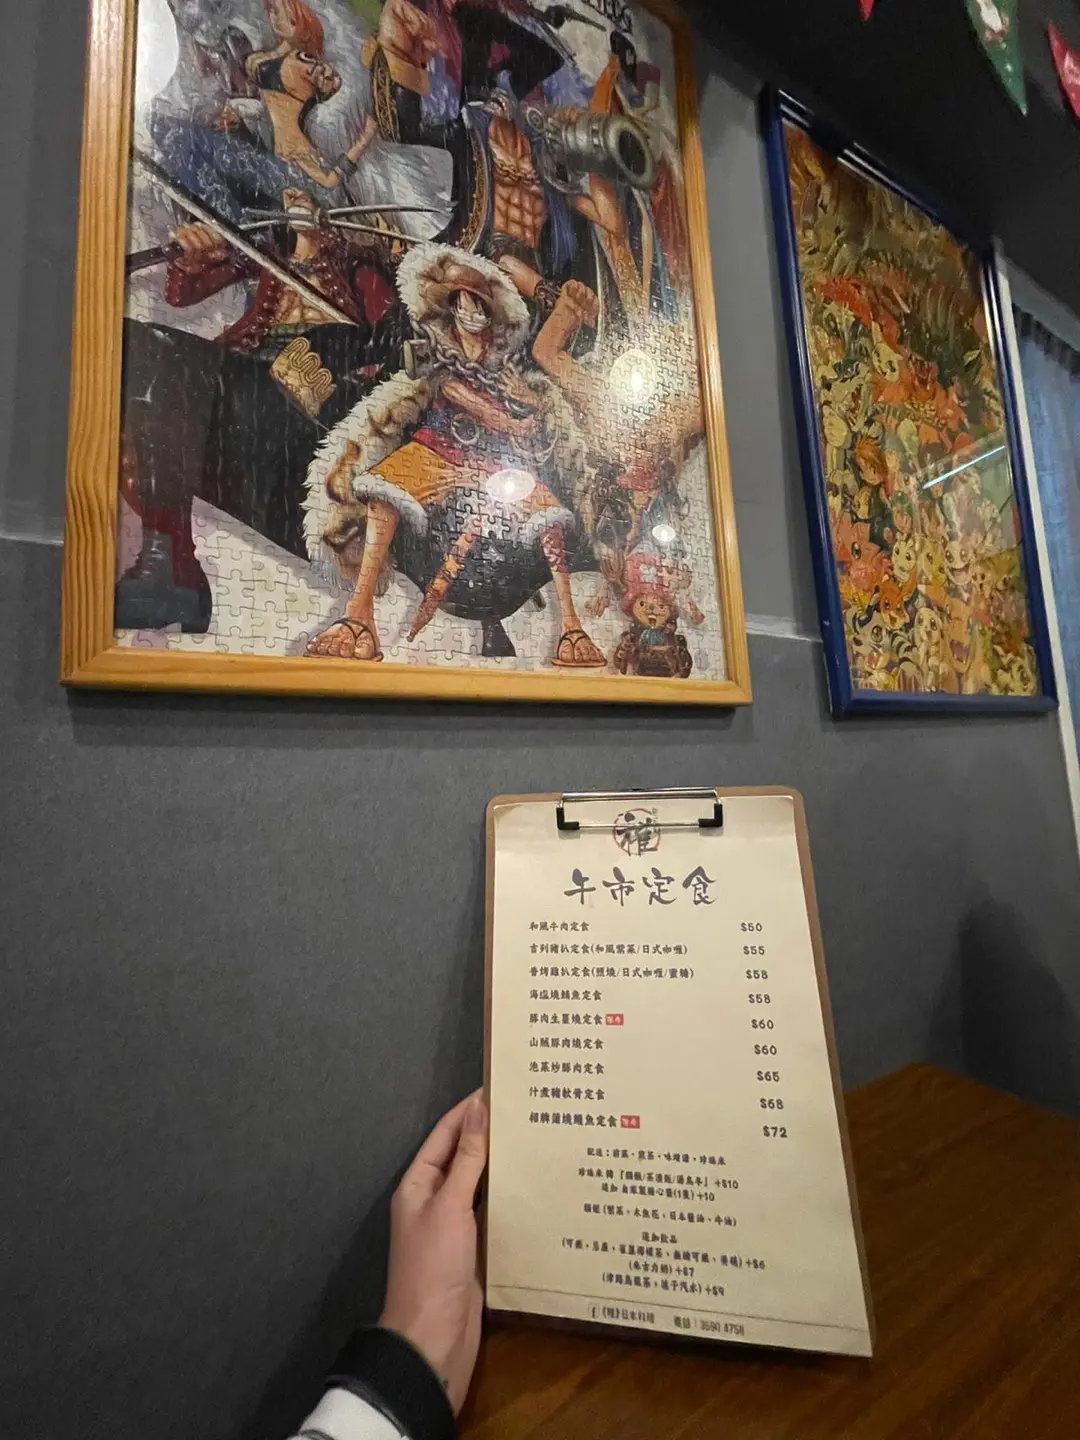 雅
午市定食
和風牛肉定食 $50
吉列豬扒定食(和風紫菜/日式咖喱) $55
香烤雞扒定食(照燒/日式咖喱/蜜糖) $58
海塩燒鯖魚定食 $58
豚肉生薑燒定食 $60
山賊豚肉燒定食 $60
泡菜炒豚肉定食 $65
汁煮豬軟骨定食 $68
招牌蒲燒鰻魚定食 $72
配送：前菜、煎茶、味噌湯、珍珠米
珍珠米 轉「/茶漬飯/湯烏冬」+$10
追加 自家製糖心蛋(1隻) +10
(紫菜、木魚花、日本醬油、牛油)
追加飲品
(可樂、忌廉、檸檬茶、無糖可樂、) +$6
(朱古力奶) +$7
(烏龍茶、桃子汽水) +$9
日本料理 電話：3590 8758